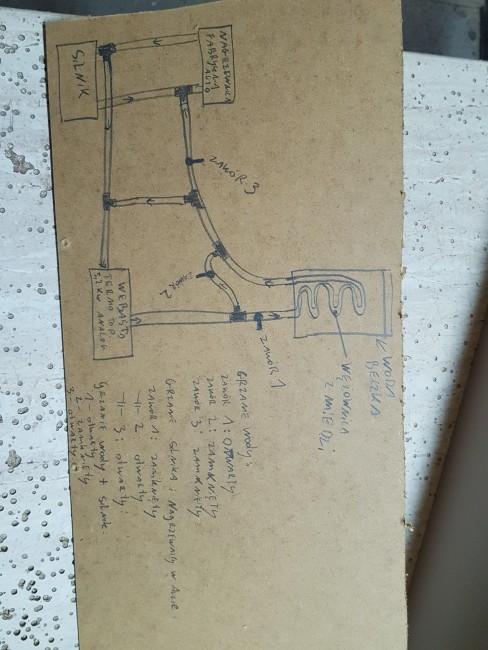 SILNIK
NAGRZEWNICA
FABRYCZNA
AUTO
ZAWÓR 3
ZAWÓR 2
WEBASTO
TERMO TOP
5,2 KW ANALOG
ZAWÓR 1
WODA
BECZKA
WĘŻOWNICA
Z MIEDZI
GRZANIE WODY:
ZAWÓR 1: OTWARTY
ZAWÓR 2: ZAMKNĘTY
ZAWÓR 3: ZAMKNĘTY
GRZANIE SILNIKA i NAGRZEWNICY W AUCIE:
ZAWÓR 1: ZAMKNIĘTY
-11- 2 OTWARTY
-11- 3: OTWARTY
GRZANIE WODY + SILNIK:
1 - OTWARTY
2 - ZAMKNIĘTY
3: OTWARTY